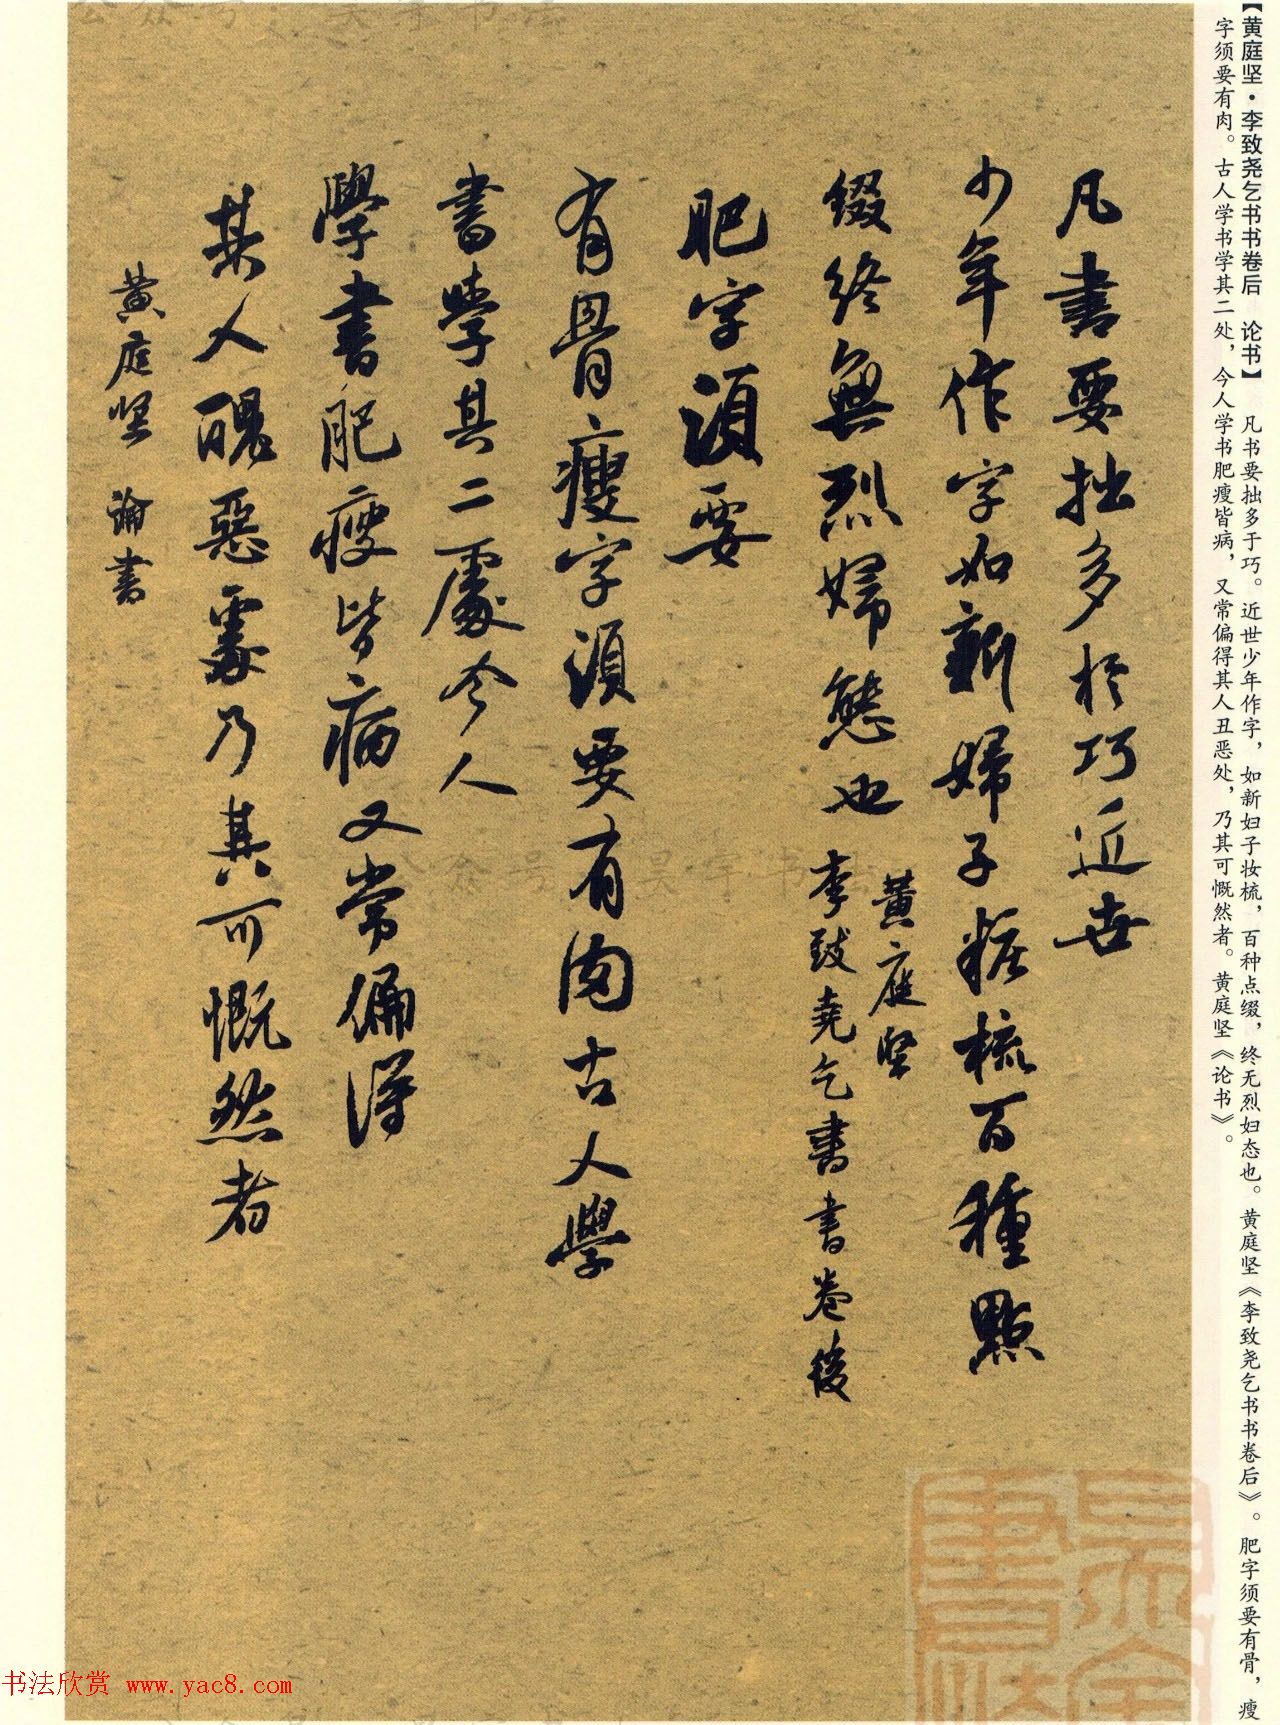 【黄庭坚·李致尧乞书书卷后　论书】　凡书要拙多于巧。近世少年作字，如新妇子妆梳，百种点缀，终无烈妇态也。黄庭坚《李致尧乞书书卷后》。肥字须要有骨，瘦
字须要有肉。古人学书学其二处，今人学书肥瘦皆病，又常偏得其人丑恶处，乃其可慨然者。黄庭坚《论书》。
凡書要拙多於巧近世
少年作字如新婦子粧梳百種點
綴終無烈婦態也
黄庭坚
李致堯乞書書卷後
肥字須要
有骨瘦字須要有肉古人學
書學其二處今人
學書肥瘦皆病又常偏得
其人醜惡處乃其可慨然者
黄庭坚 論書
公众号：昊宇书法
书法欣赏 www.yac8.com